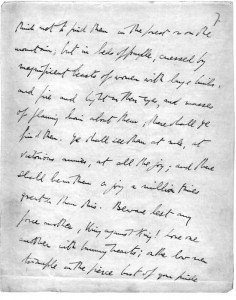 7
think not to find them in the forest or on the
mountain, but in beds of purple, caressed by
magnificent beasts of women with large limbs,
and fire and light in their eyes, and masses
of flaming hair about them; there shall ye
find them. Ye shall see them at rule, at
victorious armies, at all the joy; and there
shall be in them a joy a million times
greater than this. Beware lest any
force another, King against King! Love one
another with burning hearts; on the low men
trample in the fierce lust of your pride